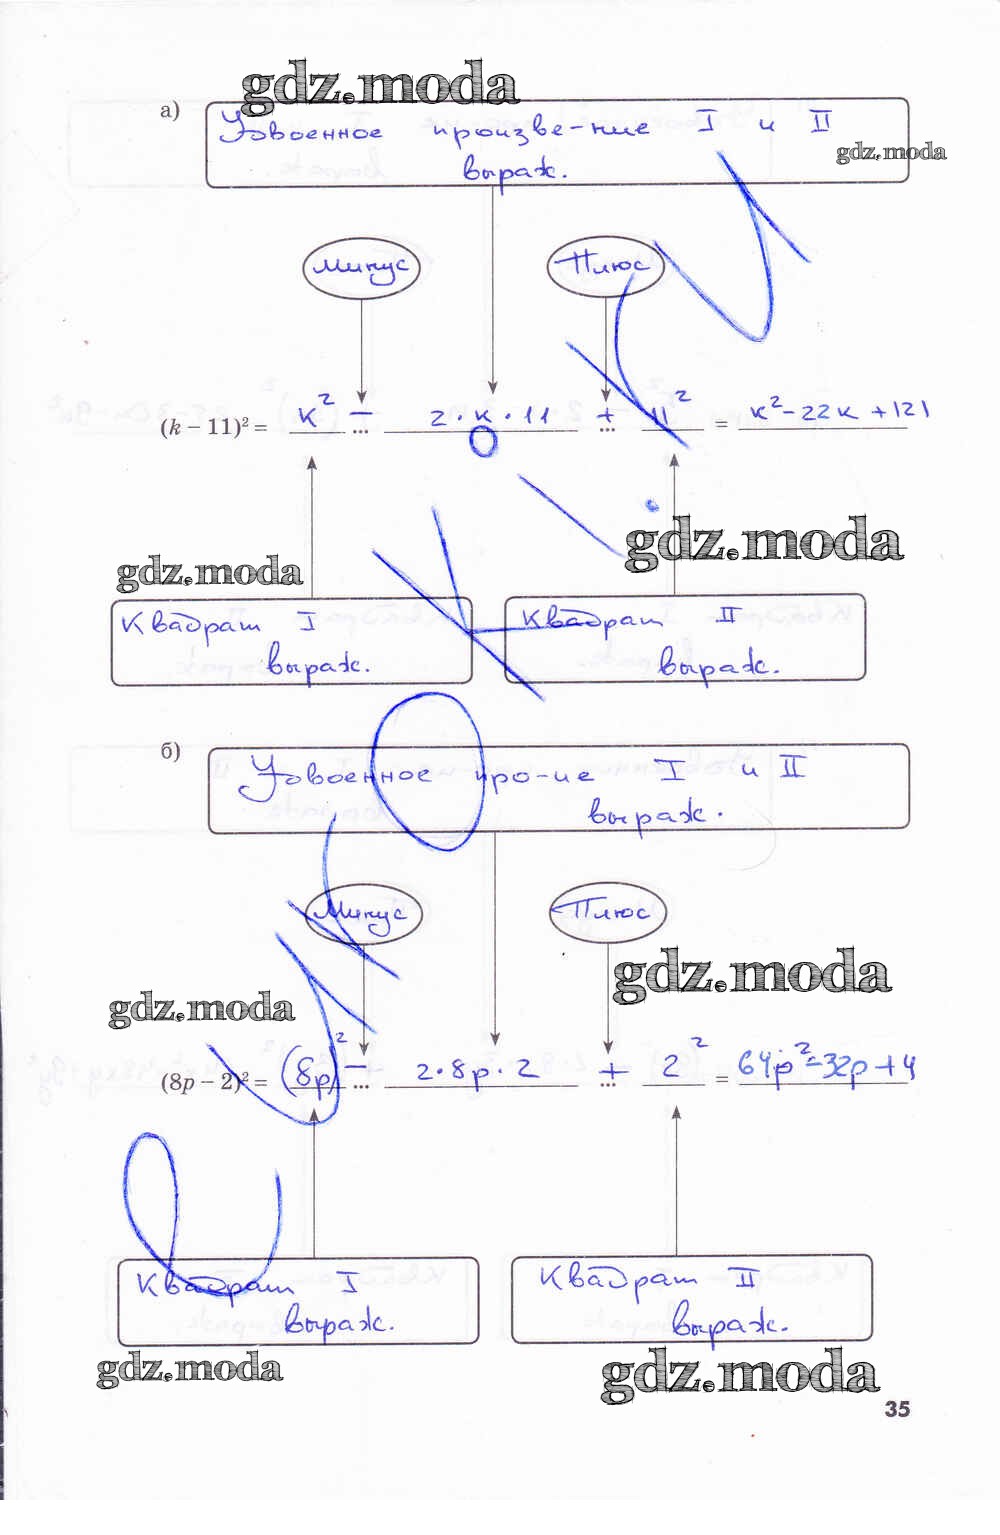 gdz.moda
а)
Удвоенное произве-ние I и II
выраж.
gdz.moda
Минус Плюс
(k – 11)² = к² – 2·к·11 + 11² = к²–22к +121
gdz.moda
gdz.moda
Квадрат I
выраж.
Квадрат II
выраж.
б)
Удвоенное про-ие I и II
выраж.
Минус Плюс
gdz.moda
gdz.moda
(8p – 2)² = (8p)² – 2·8p·2 + 2² = 64p²–32p+4
Квадрат I
выраж.
Квадрат II
выраж.
gdz.moda
gdz.moda
35